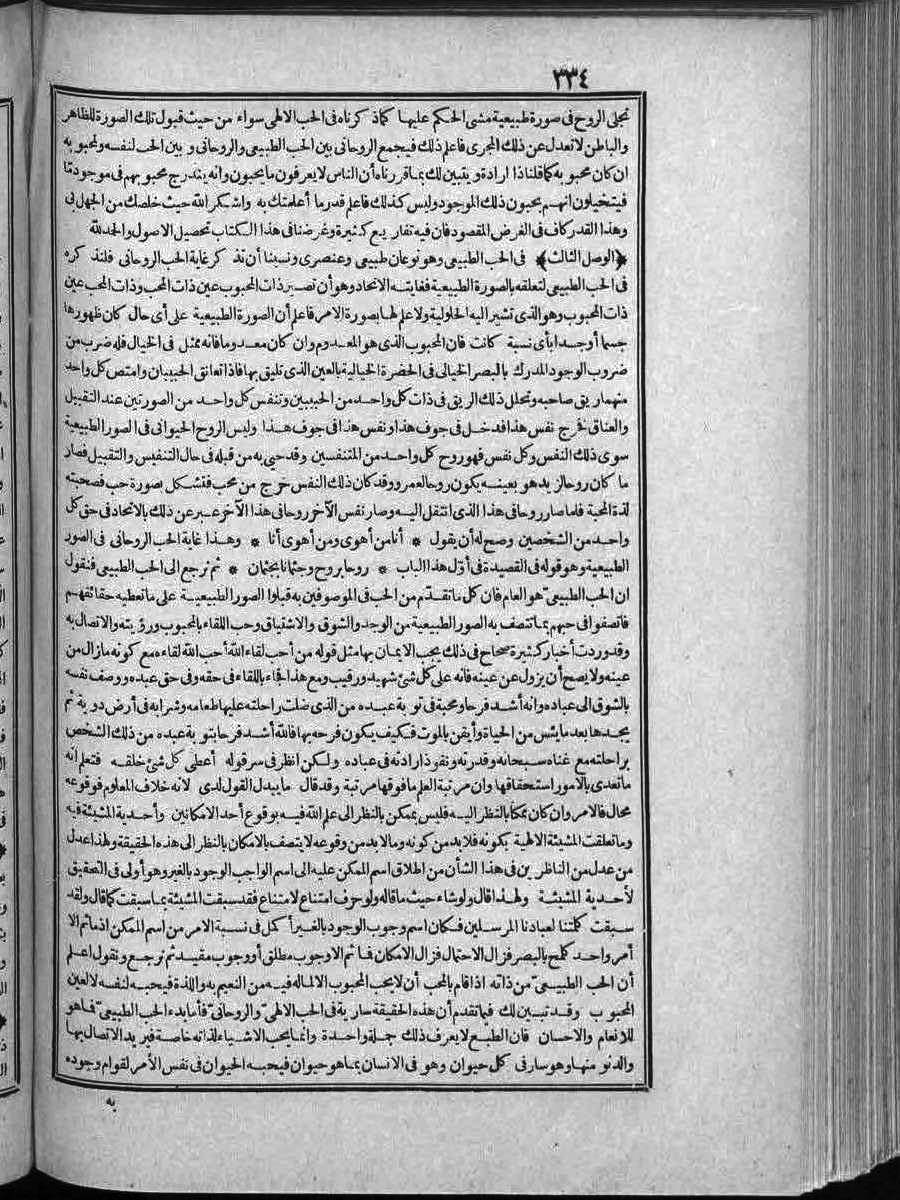 ٣٣٤
تجلى الروح فى صورة طبيعية مشى الحكم عليها كماذكرناه فى الحب الالهى سواء من حيث قبول تلك الصورة للظاهر
والباطن لا نعدل عن ذلك المجرى فاعلم ذلك فيجمع الروحانى بين الحب الطبيعى والروحانى وبين الحب لنفسه ولمحبوبه
ان كان محبوبه كما قلنا ذا ارادة ويتبين لك بما قررناه أن الناس لا يعرفون ما يحبون وانه يندرج محبوبهم فى موجود ما
فيتخيلون انهم يحبون ذلك الموجود وليس كذلك فاعلم قدر ما أعلمتك به واشكر الله حيث خلصك من الجهل بى
وهذا القدر كاف فى الغرض المقصود فان فيه تفاريع كثيرة وغرضنا فى هذا الكتاب تحصيل الاصول والحمد لله
﴿الوصل الثالث﴾ فى الحب الطبيعى وهو نوعان طبيعى وعنصرى ونسينا أن نذكر غاية الحب الروحانى فلنذكره
فى الحب الطبيعى لتعلقه بالصورة الطبيعية فغايته الاتحاد وهو أن تصير ذات المحبوب عين ذات المحب وذات المحب عين
ذات المحبوب وهو الذى تشير اليه الحلولية ولا علم لها بصورة الامر فاعلم أن الصورة الطبيعية على أى حال كان ظهورها
جسما أو جسدا بأى نسبة كانت فان المحبوب الذى هو المعدوم وان كان معدوما فانه ممثل فى الخيال فله ضرب من
ضروب الوجود المدرك بالبصر الخيالى فى الحضرة الخيالية بالعين الذى تليق بها فاذا تعانق الحبيبان وامتص كل واحد
منهما ريق صاحبه وتحلل ذلك الريق فى ذات كل واحد من الحبيبين وتنفس كل واحد من الصورتين عند التقبيل
والعناق خرج نفس هذا فدخل فى جوف هذا ونفس هذا فى جوف هذا وليس الروح الحيوانى فى الصور الطبيعية
سوى ذلك النفس وكل نفس فهو روح كل واحد من المتنفسين وقد حيى به من قبله فى حال التنفيس والتقبيل فصار
ما كان روحا لزيد هو بعينه يكون روحا لعمرو وقد كان ذلك النفس خرج من محب فتشكل بصورة حب فصحبته
لذة المحبة فلما صار روحا فى هذا الذى انتقل اليه وصار نفس الآخر روحا فى هذا الآخر عبر عن ذلك بالاتحاد فى حق كل
واحد من الشخصين وصح له أن يقول * أنا من أهوى ومن أهوى أنا * وهذا غاية الحب الروحانى فى الصور
الطبيعية وهو قوله فى القصيدة فى أول هذا الباب * روحا بروح وجثمانا بجثمان * ثم نرجع الى الحب الطبيعى فنقول
ان الحب الطبيعى هو العام فان كل ما تقدم من الحب فى الموصوفين به قبلوا الصور الطبيعية على ما تعطيه حقائقهم
فاتصفوا فى حبهم بما تتصف به الصور الطبيعية من الوجد والشوق والاشتياق وحب اللقاء بالمحبوب ورؤيته والاتصال به
وقد وردت أخبار كثيرة صحاح فى ذلك يجب الايمان بها مثل قوله من أحب لقاء الله أحب الله لقاءه مع كونه ما زال من
عينه ولا يصح أن يزول عن عينه فانه على كل شئ شهيد ورقيب ومع هذا جاء باللقاء فى حقه وفى حق عبده ووصف نفسه
بالشوق الى عباده وانه أشد فرحا ومحبة فى توبة عبده من الذى ضلت راحلته عليها طعامه وشرابه فى أرض دوية ثم
يجدها بعد ما يئس من الحياة وأيقن بالموت فكيف يكون فرحه بها فالله أشد فرحا بتوبة عبده من ذلك الشخص
براحلته مع غناه سبحانه وقدرته ونفوذ ارادته فى عباده ولكن انظر فى سر قوله أعطى كل شئ خلقه فتعلم انه
ما تعدى بالامور استحقاقها وان مرتبة العلم ما فوقها مرتبة وقد قال ما يبدل القول لدى لانه خلاف المعلوم فوقوعه
محال فالامر وان كان ممكنا بالنظر اليه فليس بممكن بالنظر الى علم الله فيه بوقوع أحد الامكانين وأحدية المشيئة فيه
وما تعلقت المشيئة الالهية بكونه فلا بد من كونه وما لا بد من وقوعه لا يتصف بالامكان بالنظر الى هذه الحقيقة ولهذا عدل
من عدل من الناظرين فى هذا الشأن من اطلاق اسم الممكن عليه الى اسم الواجب الوجود بالغير وهو أولى فى التحقيق
لأحدية المشيئة ولهذا قال ولو شاء حيث ما قاله ولو حرف امتناع لامتناع فقد سبقت المشيئة بما سبقت كما قال ولقد
سبقت كلمتنا لعبادنا المرسلين فكان اسم وجوب الوجود بالغير أكمل فى نسبة الامر من اسم الممكن اذ ما ثم الا
أمر واحد كلمح بالبصر فزال الاحتمال فزال الامكان فما ثم الا وجوب مطلق أو وجوب مقيد ثم نرجع ونقول اعلم
أن الحب الطبيعى من ذاته اذا قام بالمحب أن لا يحب المحبوب الا لما له فيه من النعيم به واللذة فيحبه لنفسه لا لعين
المحبوب وقد تبين لك فيما تقدم أن هذه الحقيقة سارية فى الحب الالهى والروحانى فأما بدء الحب الطبيعى فما هو
للانعام والاحسان فان الطبع لا يعرف ذلك جملة واحدة وانما يحب الاشياء لذاته خاصة فيريد الاتصال بها
والدنو منها وهو سار فى كل حيوان وهو فى الانسان بما هو حيوان فيحبه الحيوان فى نفس الأمر لقوام وجوده
به